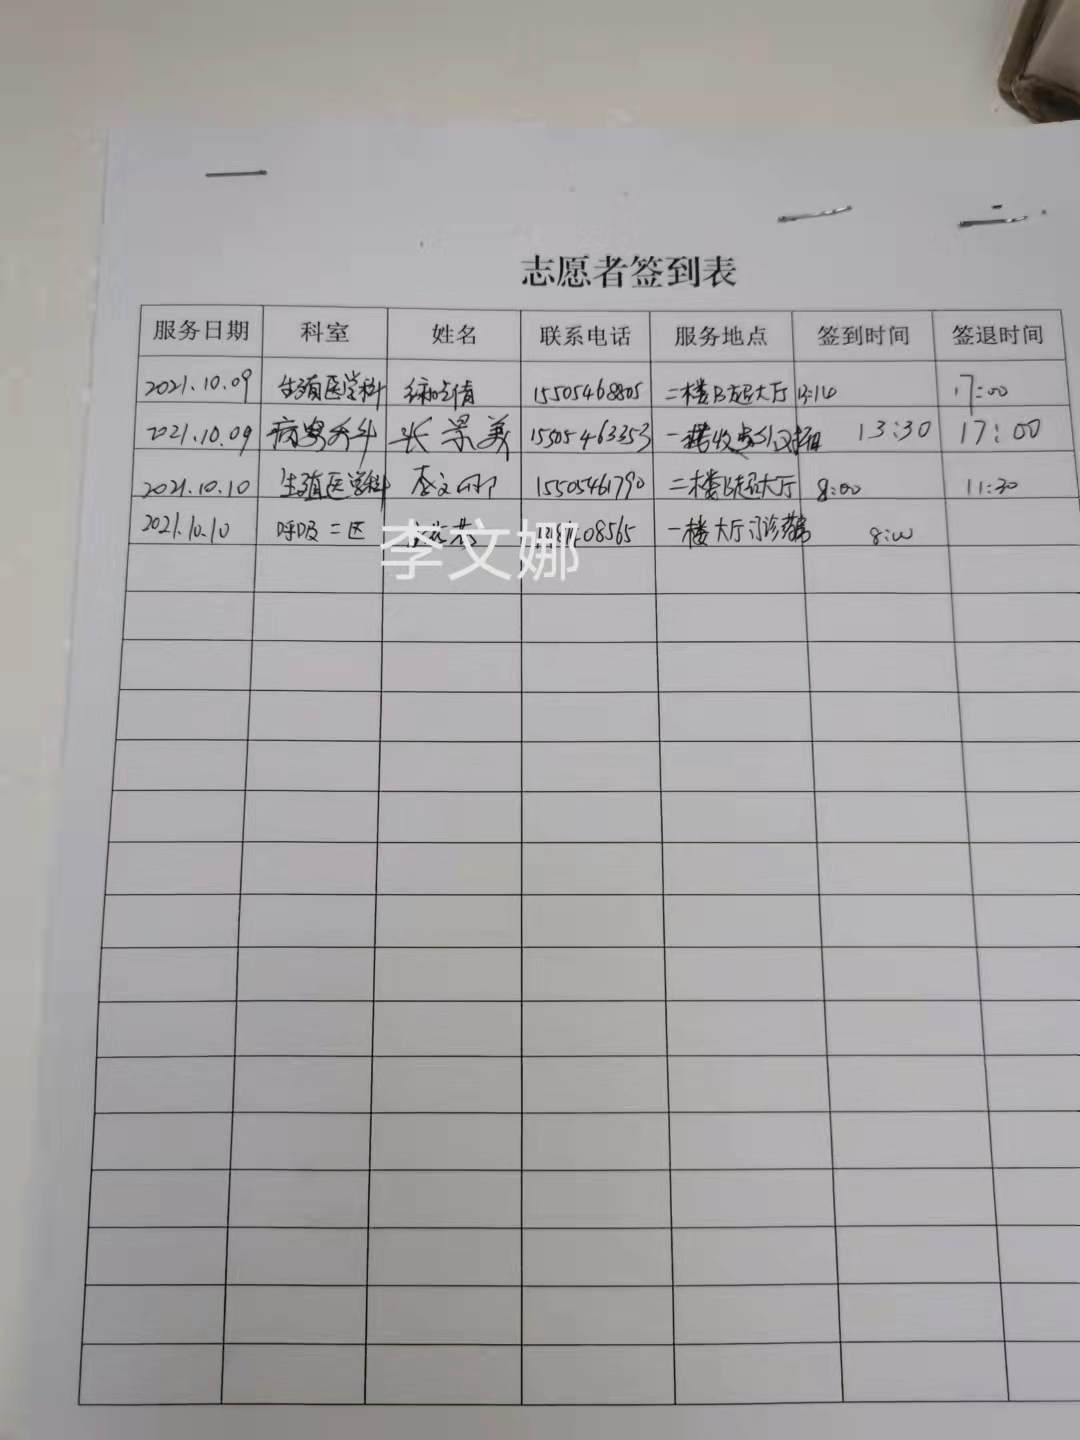 志愿者签到表
服务日期 科室 姓名 联系电话 服务地点 签到时间 签退时间
2021.10.09 生殖医学科 15505468805 二楼B超大厅 17:00
2021.10.09 张景美 15505463353 一楼收费 13:30 17:00
2021.10.10 生殖医学科 李文娜 15505461790 二楼B超大厅 8:00 11:30
2021.10.10 呼吸二区 一楼大厅门诊 8:00
李文娜